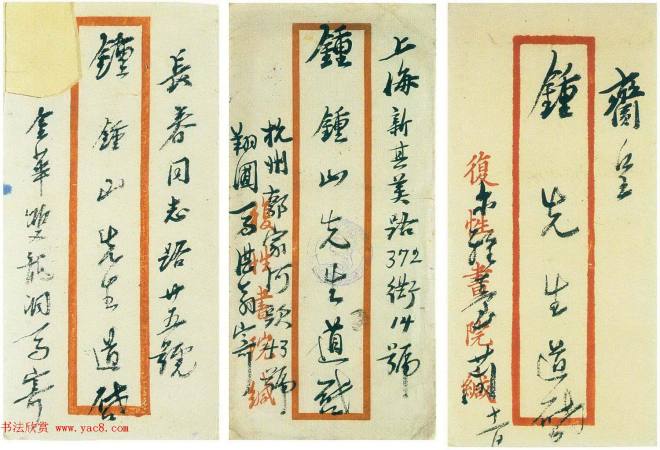 長春同志路廿五號
鍾鍾山先生道啓
金華雙龍洞馬寄
上海新其美路372衖14號
鍾鍾山先生道啓
杭州郭家河頭43號
復性書院緘
齎呈
鍾先生道啓
復性書院緘
书法欣赏
www.yac8.com